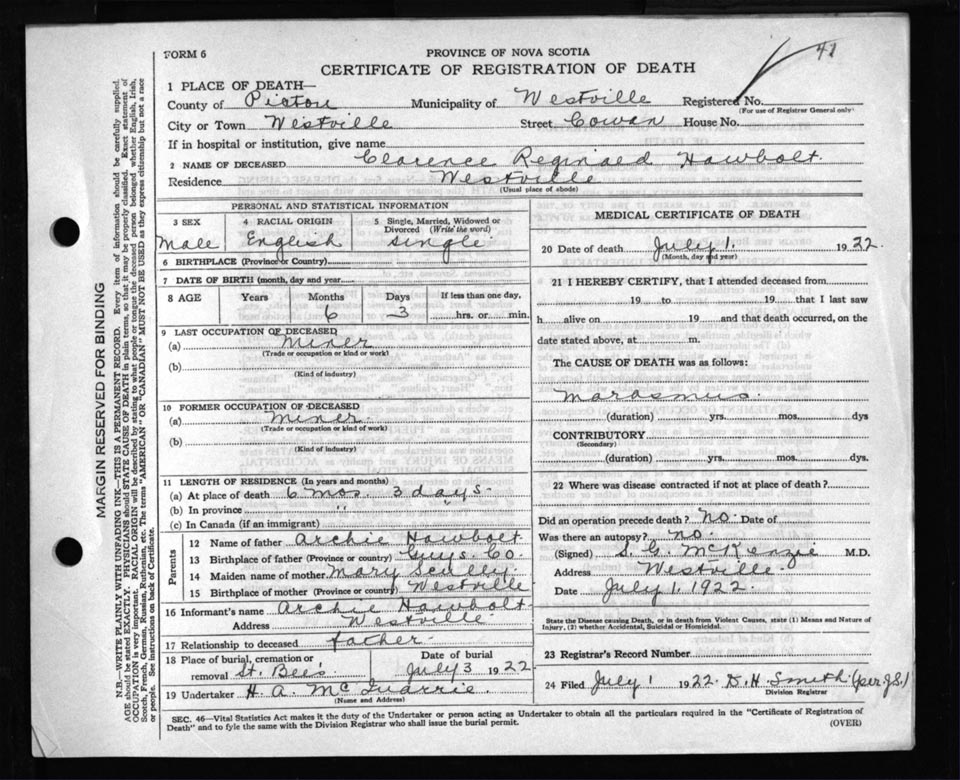 41
FORM 6
PROVINCE OF NOVA SCOTIA
CERTIFICATE OF REGISTRATION OF DEATH
1 PLACE OF DEATH—
County of Pictou Municipality of Westville Registered No.
(For use of Registrar General only)
City or Town Westville Street Cowan House No.
If in hospital or institution, give name
2 NAME OF DECEASED Clarence Reginald Hawbolt.
Residence Westville
(Usual place of abode)
PERSONAL AND STATISTICAL INFORMATION
3 SEX 4 RACIAL ORIGIN 5 Single, Married, Widowed or Divorced (Write the word)
Male English single
6 BIRTHPLACE (Province or Country)
7 DATE OF BIRTH (month, day and year)
8 AGE Years Months Days If less than one day,
6 3 hrs. or min.
9 LAST OCCUPATION OF DECEASED
(a) Miner
(Trade or occupation or kind of work)
(b)
(Kind of industry)
10 FORMER OCCUPATION OF DECEASED
(a) Miner.
(Trade or occupation or kind of work)
(b)
(Kind of industry)
11 LENGTH OF RESIDENCE (In years and months)
(a) At place of death 6 mos. 3 days.
(b) In province " "
(c) In Canada (if an immigrant)
Parents
12 Name of father Archie Hawbolt
13 Birthplace of father (Province or country) Guys. Co.
14 Maiden name of mother Mary Scully.
15 Birthplace of mother (Province or country) Westville
16 Informant's name Archie Hawbolt
Address Westville
17 Relationship to deceased father.
18 Place of burial, cremation or removal St. Bees Date of burial July 3 1922
19 Undertaker H. A. McQuarrie.
(Name and Address)
MEDICAL CERTIFICATE OF DEATH
20 Date of death July 1. 1922.
(Month, day and year)
21 I HEREBY CERTIFY, that I attended deceased from
19 to 19 that I last saw
h alive on 19 and that death occurred, on
date stated above, at m.
The CAUSE OF DEATH was as follows:
Marasmus.
(duration) yrs. mos. dys
CONTRIBUTORY
(Secondary)
(duration) yrs. mos. dys.
22 Where was disease contracted if not at place of death?
Did an operation precede death? no. Date of
Was there an autopsy? no.
(Signed) S. G. McKenzie M.D.
Address Westville.
Date July 1. 1922.
State the Disease causing Death, or in death from Violent Causes, state (1) Means and Nature of Injury, (2) whether Accidental, Suicidal or Homicidal.
23 Registrar's Record Number
24 Filed July 1 1922. D. H. Smith (per J.S.)
Division Registrar
SEC. 46—Vital Statistics Act makes it the duty of the Undertaker or person acting as Undertaker to obtain all the particulars required in the "Certificate of Registration of
Death" and to fyle the same with the Division Registrar who shall issue the burial permit. (OVER)
MARGIN RESERVED FOR BINDING
N.B.—WRITE PLAINLY WITH UNFADING INK—THIS IS A PERMANENT RECORD. Every item of information should be carefully supplied.
AGE should be stated EXACTLY. PHYSICIANS should STATE CAUSE OF DEATH in plain terms, so that it may be properly classified. Exact statement of
OCCUPATION is very important. RACIAL ORIGIN will be described by stating to what people or tongue the deceased person belonged whether English, Irish,
Scotch, French, German, Russian, Ruthenian, etc. The terms "AMERICAN" OR "CANADIAN" MUST NOT BE USED as they express citizenship but not a race
or people. See instructions on back of Certificate.